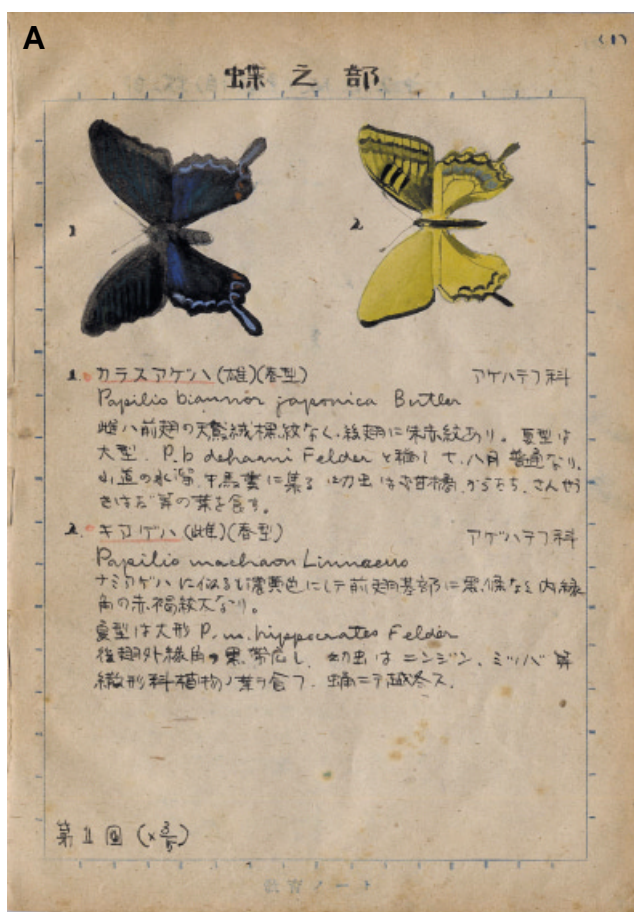 A
(1)
蝶之部
1
2
1. カラスアゲハ(雄)(春型) アゲハテフ科
Papilio bianor japonica Butler
雌ハ前翅の天鵞絨様紋なく、後翅に朱赤紋あり。夏型は
大型. P.b dehaani Felder と称して、八月普通なり。
山道の水溜、牛馬糞に集る 幼虫は 柑橘、からたち、さんせう
きはだ等の葉を食す。
2. キアゲハ(雌)(春型) アゲハテフ科
Papilio machaon Linnaeus
ナミアゲハに似るも濃黄色にして前翅基部に黒條なく内縁
角の赤褐紋大なり。
夏型は大形 P. m. hippocrates Felder
後翅外縁角の黒帯広し、幼虫は ニンジン、ミツバ 等
繖形科植物ノ葉ヲ食フ. 蛹ニテ越冬ス.
第1図 (×3/5)